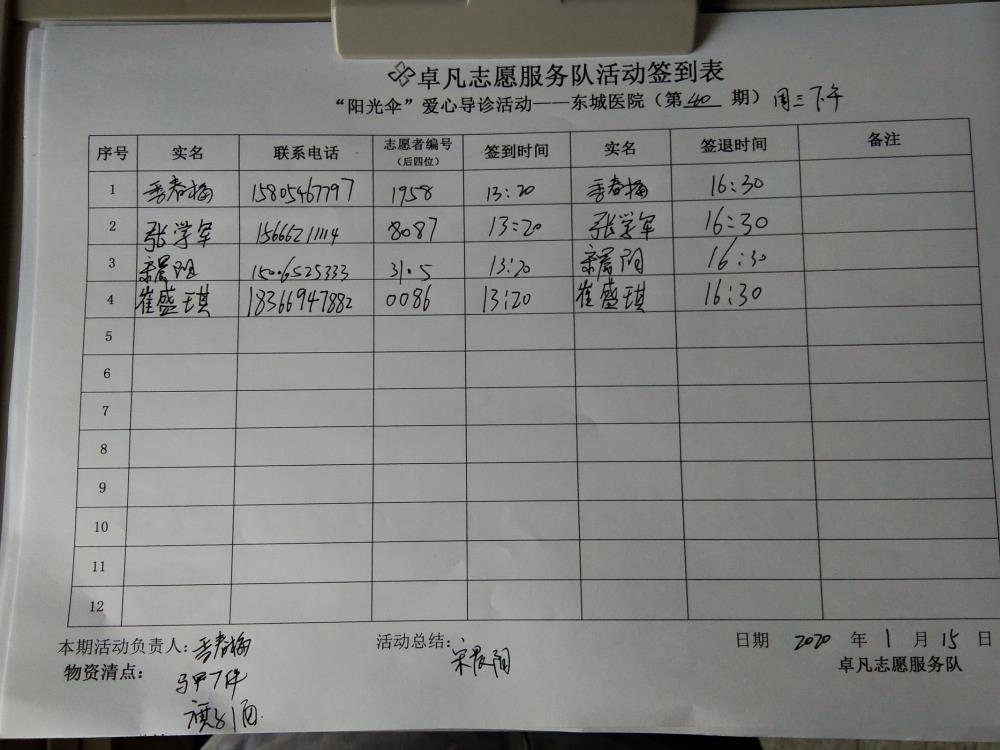 卓凡志愿服务队活动签到表
“阳光伞”爱心导诊活动——东城医院（第 40 期）周三下午
序号 实名 联系电话 志愿者编号（后四位） 签到时间 实名 签退时间 备注
1 春梅 15805467797 1958 13:20 春梅 16:30
2 张学军 15666211114 8087 13:20 张学军 16:30
3 宋晨阳 15006525333 3105 13:20 宋晨阳 16:30
4 崔盛琪 18366947882 0086 13:20 崔盛琪 16:30
5
6
7
8
9
10
11
12
本期活动负责人：春梅 活动总结：宋晨阳 日期 2020 年 1 月 15 日
物资清点：马甲7件 卓凡志愿服务队
旗子1面